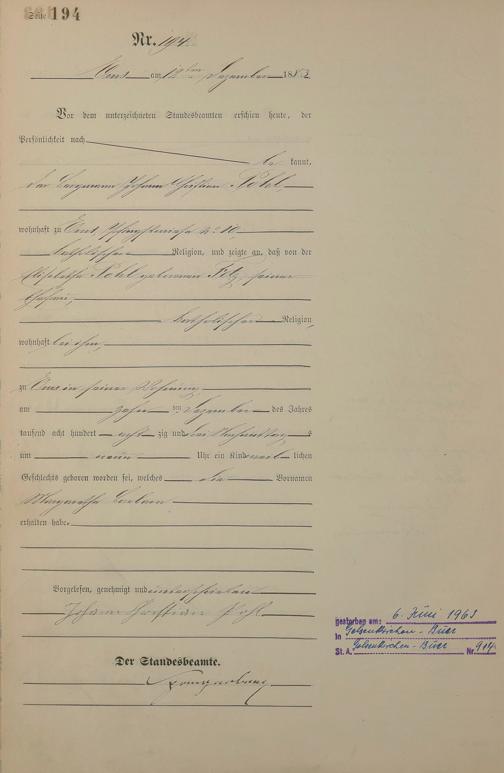 Seite 194
Nr. 194
Ems am 12ten Dezember 188
Vor dem unterzeichneten Standesbeamten erschien heute, der
Persönlichkeit nach
be kannt,
der Bergmann Johann Christian Pohl
wohnhaft zu Ems, No 10,
katholischer Religion, und zeigte an, daß von der
Pohl geborenen seiner
Ehefrau,
katholischer Religion,
wohnhaft bei ihm,
zu Ems in seiner Wohnung
am zehn ten Dezember des Jahres
tausend acht hundert acht zig und
um neun Uhr ein Kind weib lichen
Geschlechts geboren worden sei, welches die Vornamen
Margaretha
erhalten habe.
Vorgelesen, genehmigt und unterschrieben
Johann Christian Pohl
Der Standesbeamte.
gestorben am: 6. Juni 1963
in Gelsenkirchen-Buer
St. A. Gelsenkirchen-Buer Nr. 914